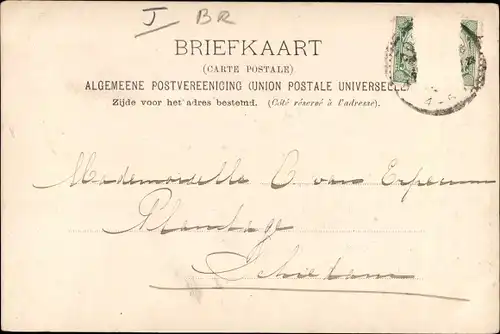 J BR
BRIEFKAART
(CARTE POSTALE)
ALGEMEENE POSTVEREENIGING (UNION POSTALE UNIVERSELLE)
Zijde voor het adres bestemd. (Côté réservé à l'adresse).
Mademoiselle C. van Erpecum
Plantage
Schiedam